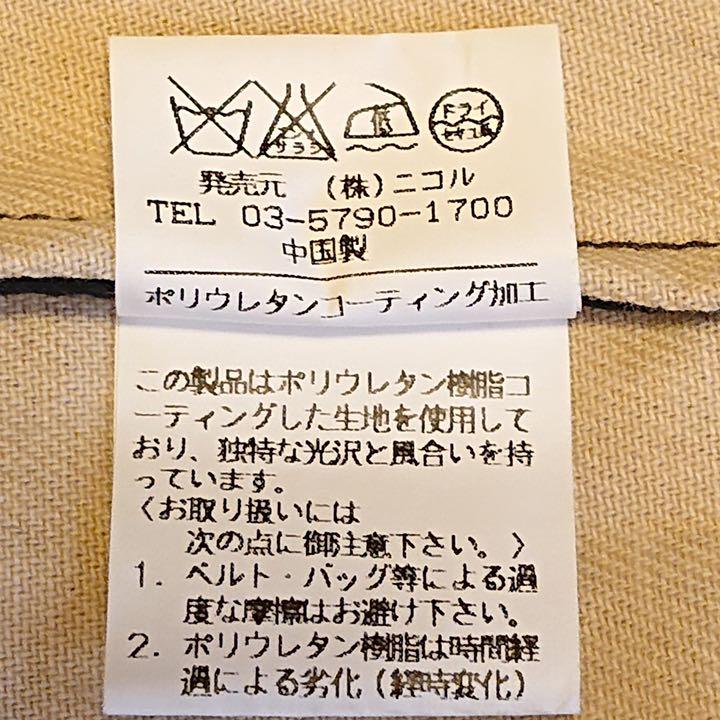 エンソ
サラシ
低
ドライ
セキユ系
発売元 (株)ニコル
TEL 03-5790-1700
中国製
ポリウレタンコーティング加工
この製品はポリウレタン樹脂コ
ーティングした生地を使用して
おり、独特な光沢と風合いを持
っています。
〈お取り扱いには
次の点に御注意下さい。〉
1. ベルト・バッグ等による過
度な摩擦はお避け下さい。
2. ポリウレタン樹脂は時間経
過による劣化(経時変化)